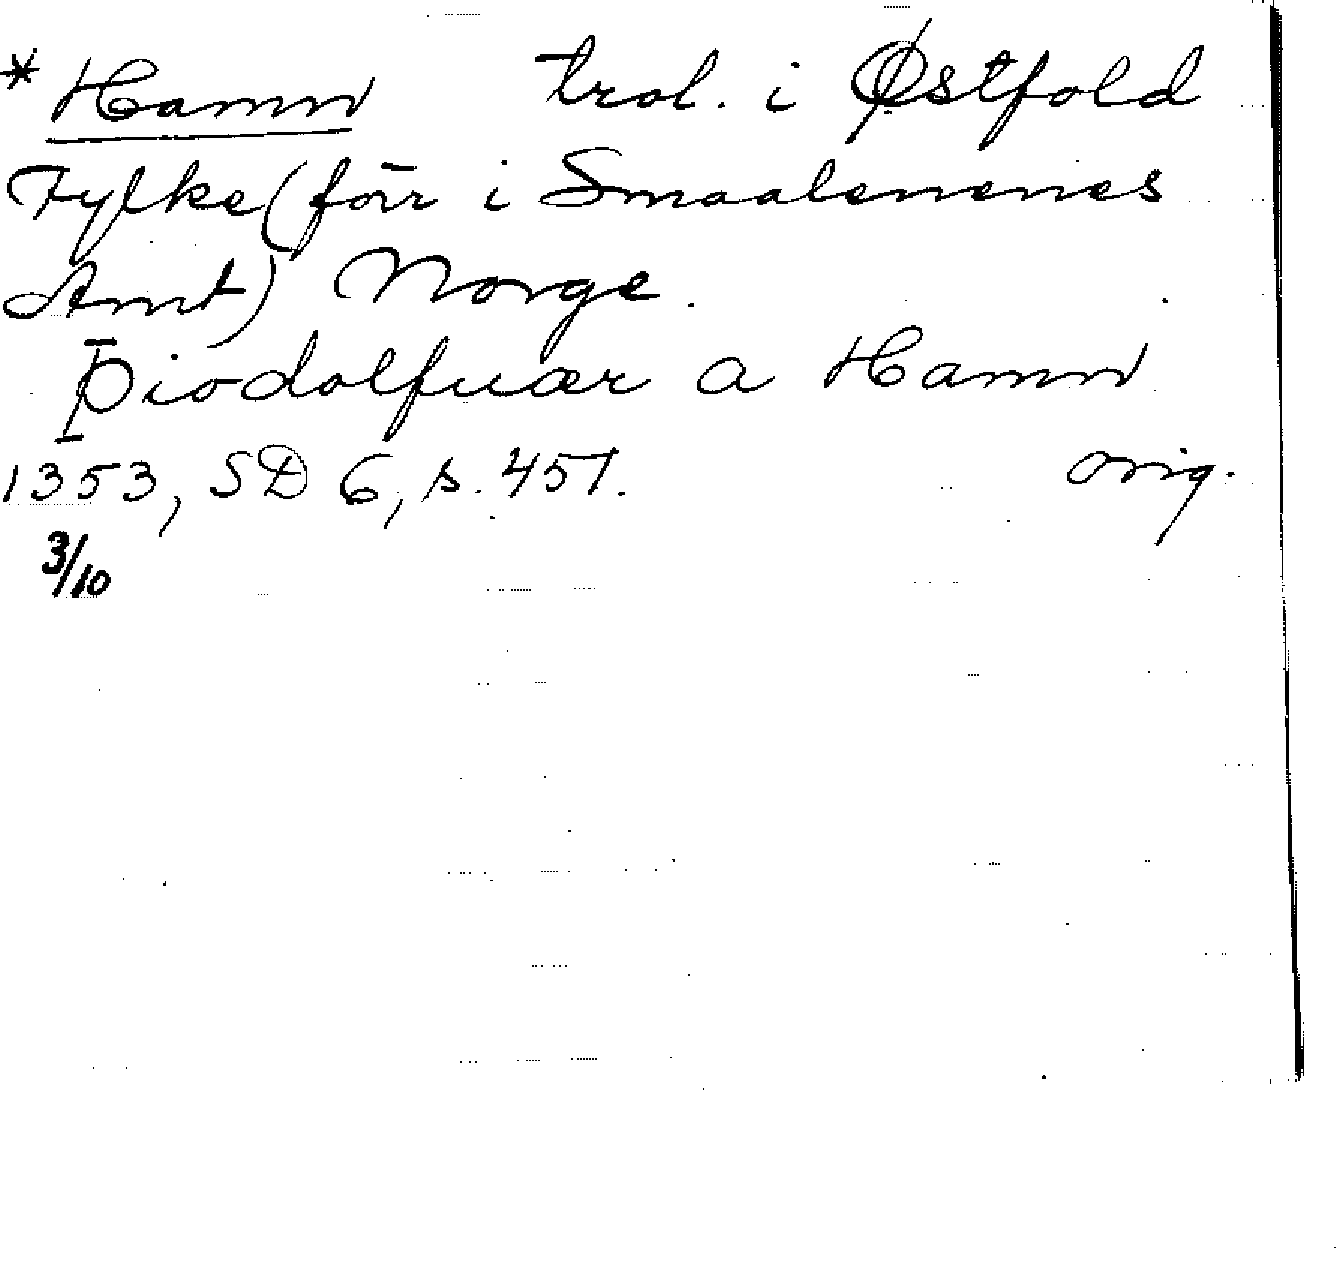 * Hamn trol. i Østfold
Fylke (förr i Smaalenenes
Amt) Norge.
Þiodolfuær a Hamn
1353, SD 6, s. 457. orig.
3/10